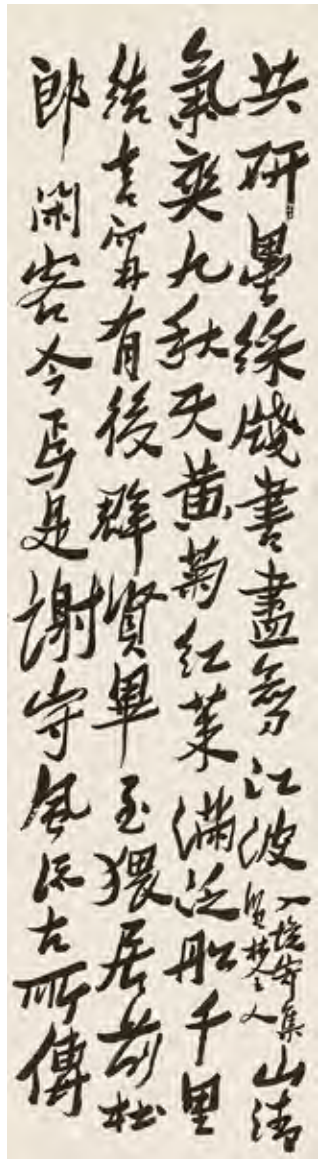 共研墨綵牋書盡剪江波入境寄集賢林舍人山清
氣爽九秋天黃菊紅茱滿泛船千里
結言甯有後群賢畢至猥居前杜
郎閑客今焉是謝守風流古所傳